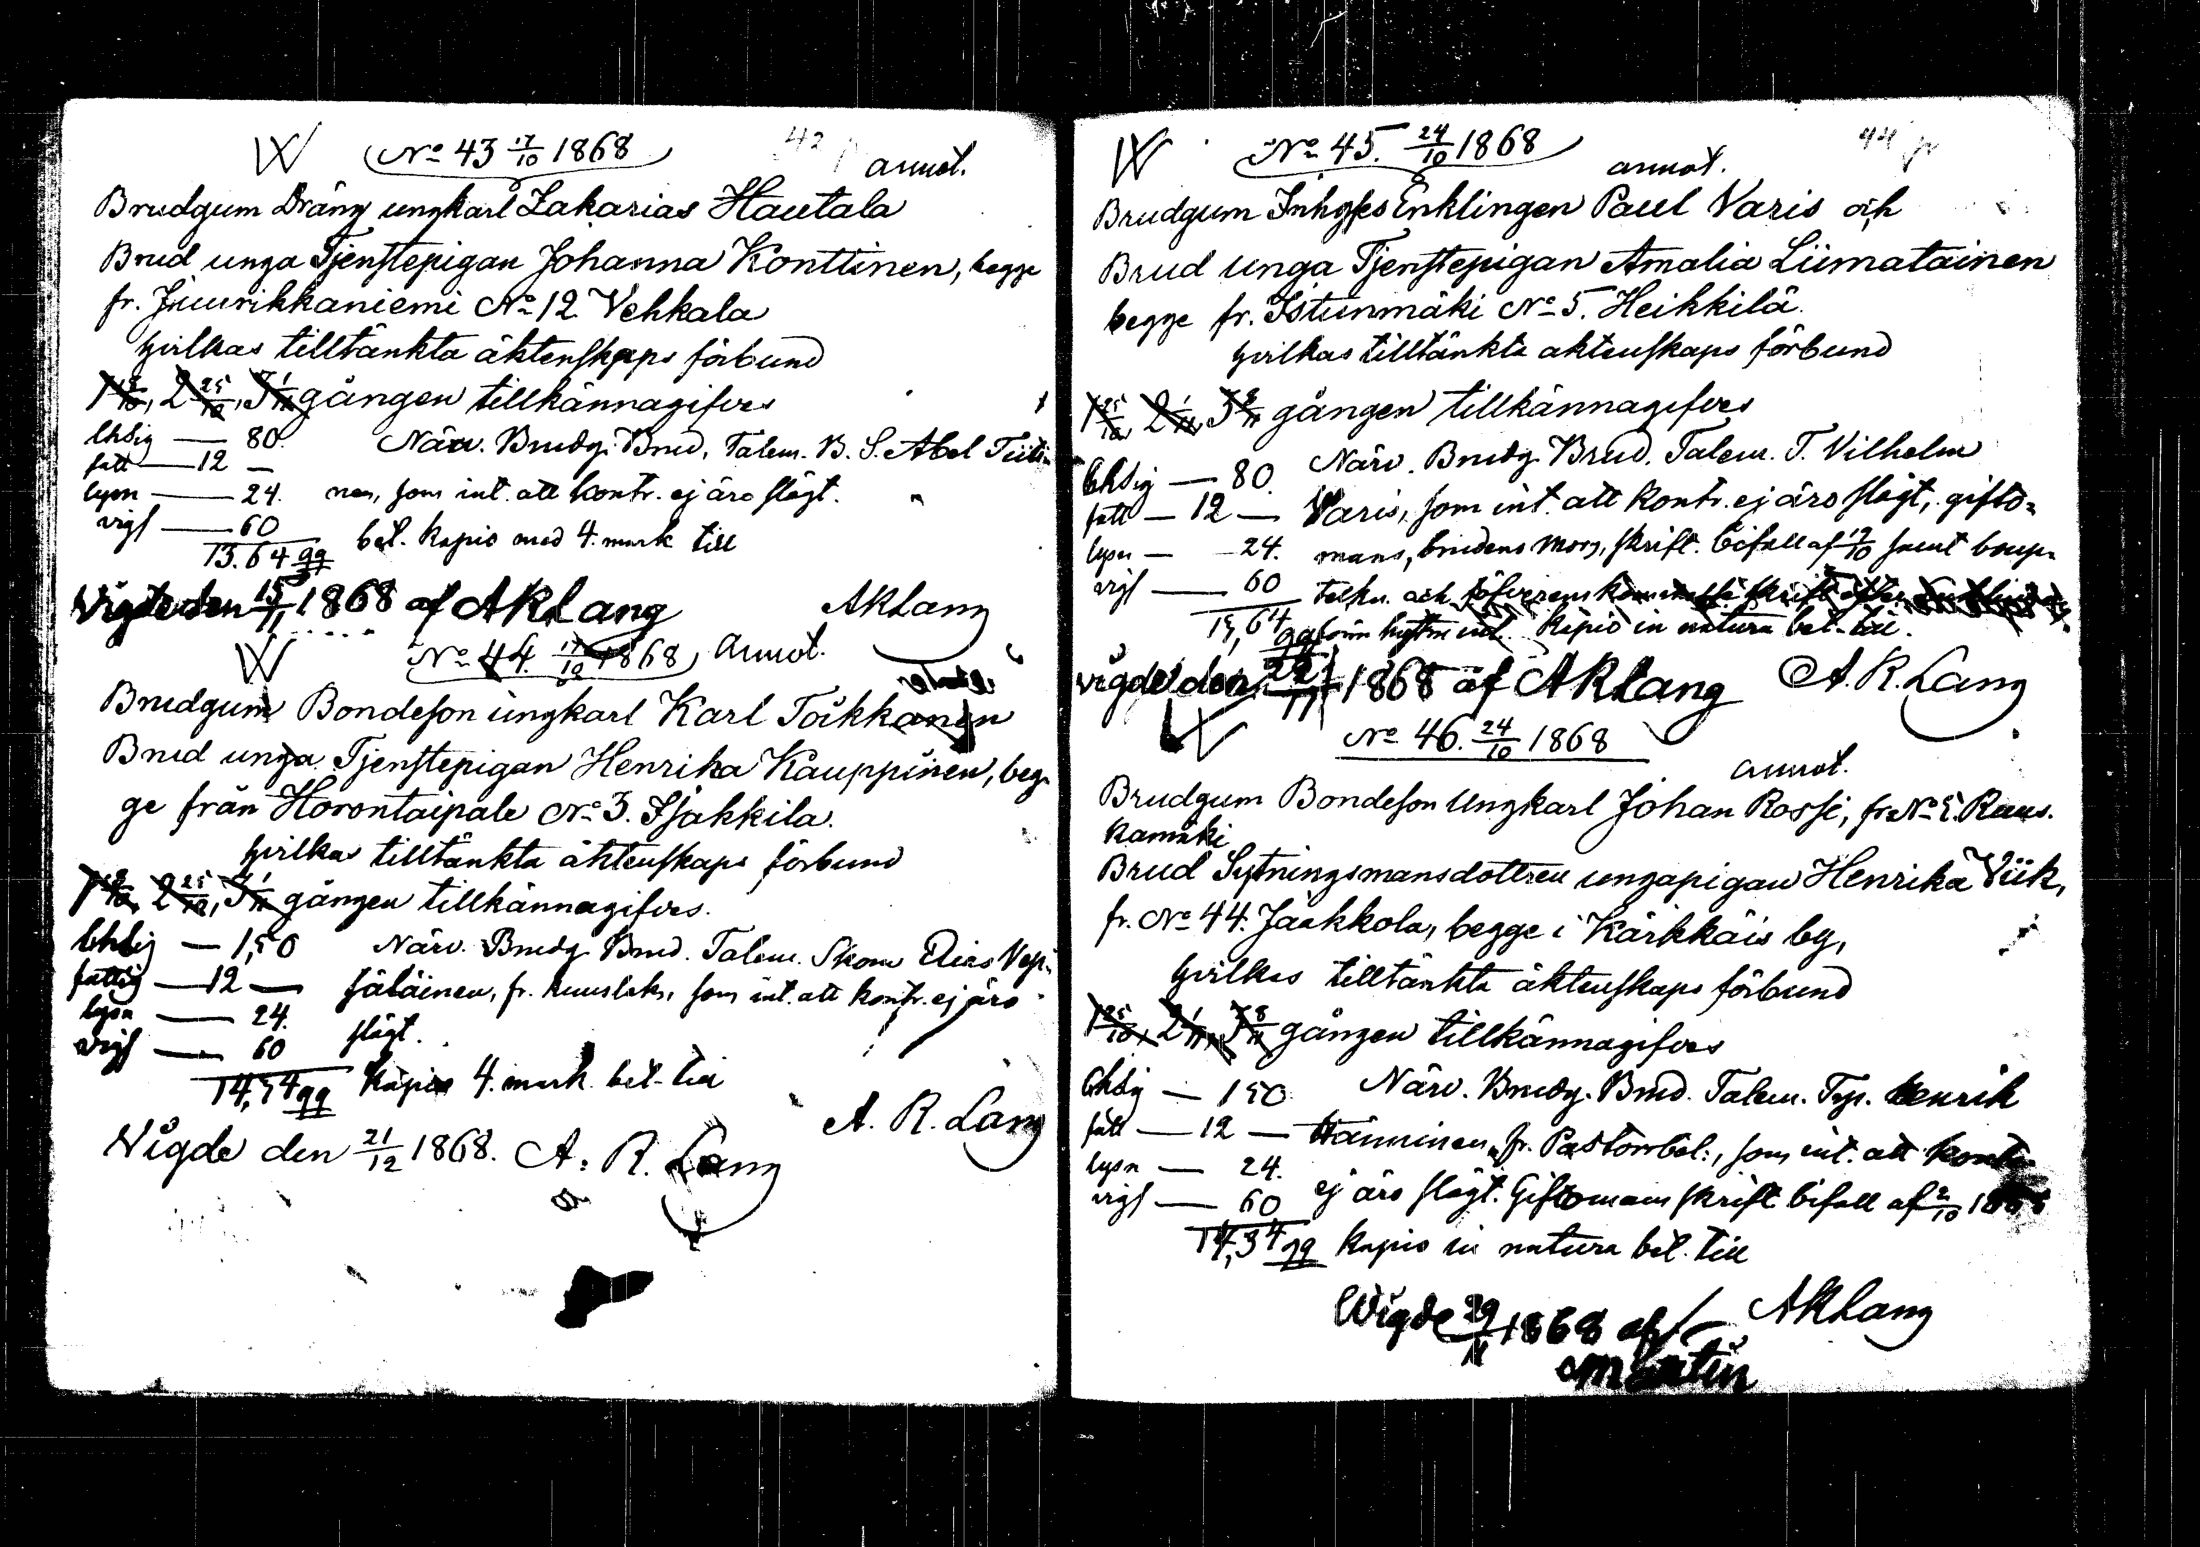 W № 43 17/10 1868 42
annot.
Brudgum Dräng ungkarl Zakarias Hautala
Brud unga Tjenstepigan Johanna Konttinen, begge
fr. Juurikkaniemi № 12 Vehkala
hvilkas tilltänkta äktenskaps förbund
1 18/10, 2 25/10, 3 1/11 gången tillkännagifves
80. Närv. Brudg. Brud, Talem. B. S. Abel Tiiti-
fatt — 12 —
lysn — 24. nen, som int. att kontr. ej äro slägt.
vigs — 60
13.64 bet. kapio med 4. mark till
Vigde den 15/11 1868 af ARLang ARLang
W № 44. 17/10 1868 annot.
Brudgum Bondeson ungkarl Karl Toikkanen
Brud unga Tjenstepigan Henrika Kauppinen, beg-
ge från Horontaipale № 3. Sjakkila.
hvilkas tilltänkta äktenskaps förbund
1 18/10, 2 25/10, 3 1/11 gången tillkännagifves.
1,50 Närv. Brudg. Brud. Talem. Skom Elias Vep-
fattig — 12 — säläinen, fr. som int. att kontr. ej äro
lysn — 24. slägt.
vigs — 60
Kapio 4. mark bet. till
Vigde den 21/12 1868. A. R. Lang A. R. Lang
W № 45. 24/10 1868 44
annot.
Brudgum Inhyses Enklingen Paul Varis och
Brud unga Tjenstepigan Amalia Liimatainen
begge fr. Istunmäki № 5. Heikkilä.
hvilkas tilltänkta äktenskaps förbund
1 25/10, 2 1/11, 3 8/11 gången tillkännagifves
80. Närv. Brudg. Brud. Talem. T. Vilhelm
fatt — 12 — Varis, som int. att kontr. ej äro slägt, gifto-
lysn — 24. mans, brudens mors, skrift. bifall af 19/10 samt
vigs — 60 och
Kapio in natura bet. till.
vigde den 22/11 1868 af ARLang A. R. Lang
W № 46. 24/10 1868
annot.
Brudgum Bondeson Ungkarl Johan Rossi, fr. № 5. Raus-
kamäki
Brud Sytningsmansdottren ungapigan Henrika Viik,
fr. № 44. Jaakkola, begge i Kärkkäis by,
hvilkas tilltänkta äktenskaps förbund
1 25/10, 2 1/11, 3 8/11 gången tillkännagifves
150 Närv. Brudg. Brud. Talem. Henrik
fatt — 12 — Hänninen, fr. Pastorsbol:, som int. att kontr
lysn — 24.
vigs — 60 ej äro slägt. Giftomans skrift. bifall af 2/10 1868
Kapio in natura bet. till
Wigde 29/11 1868 af ARLang